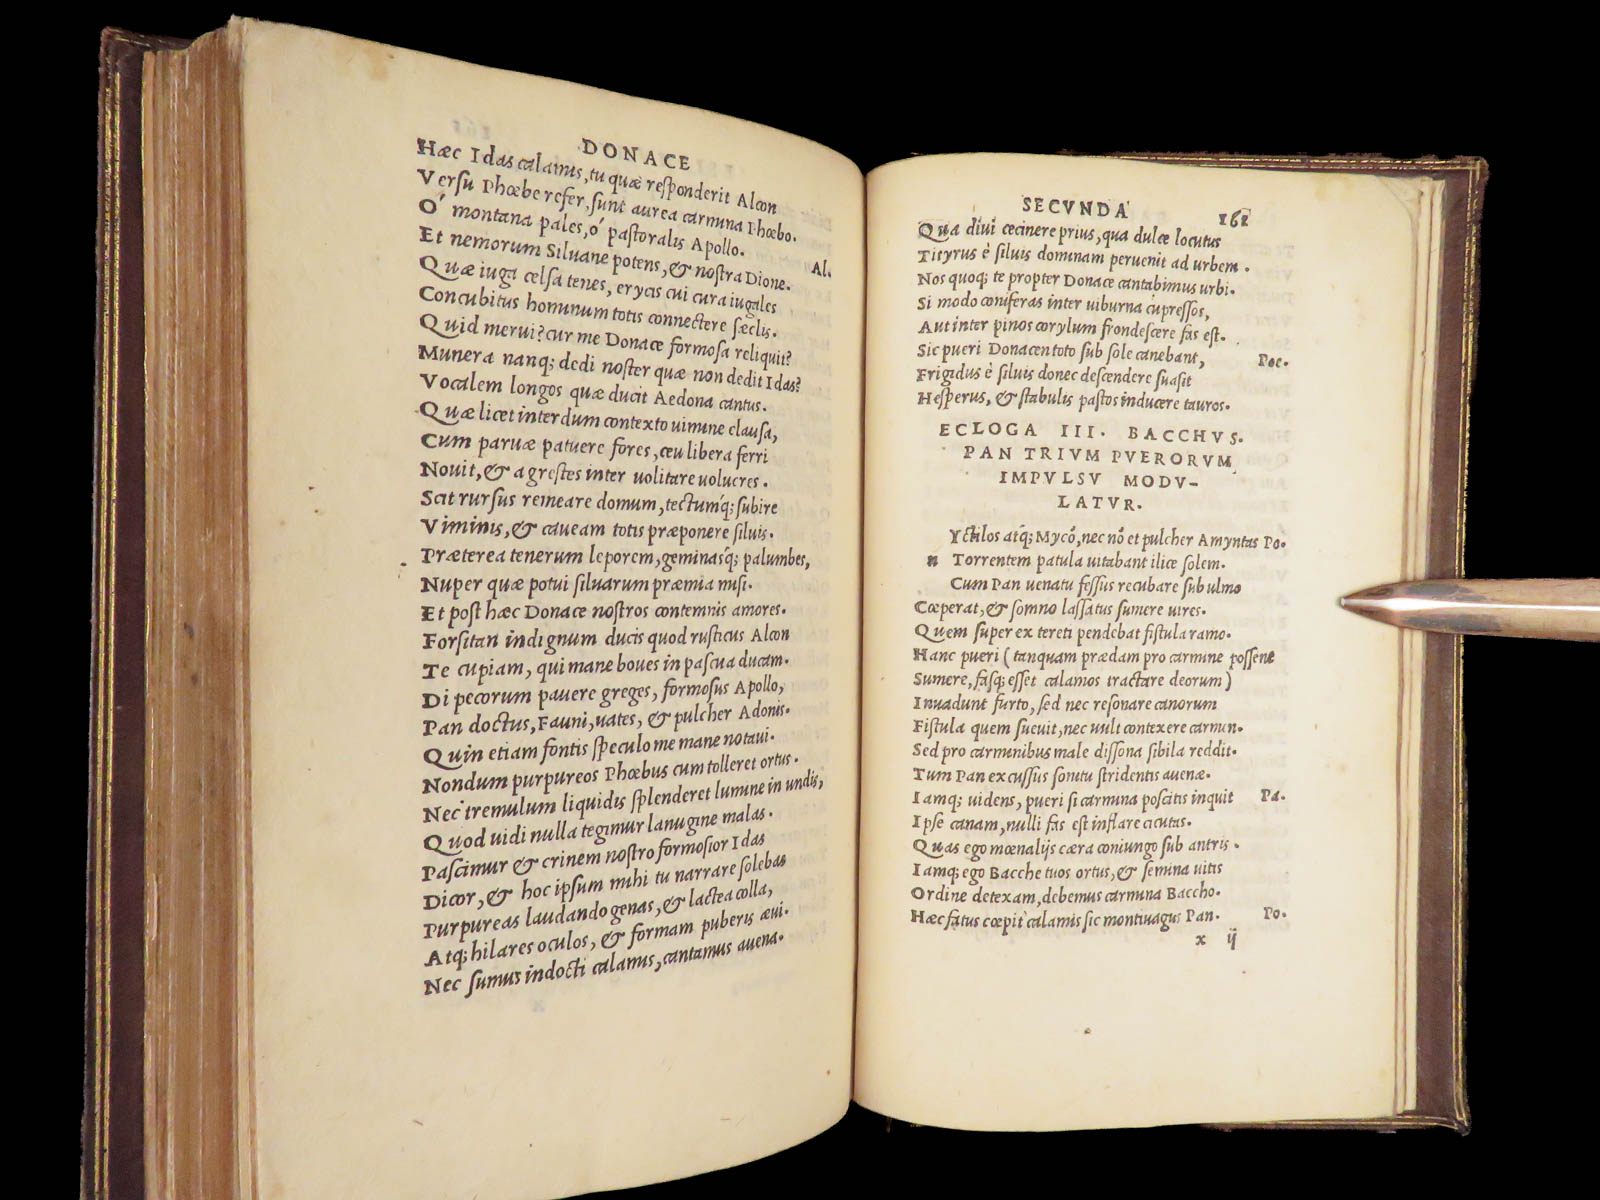 DONACE
Hæc Idas calamis, tu quæ responderit Alcon
Versu Phœbe refer, sunt aurea carmina Phœbo.
O' montana pales, ó pastoralis Apollo. Al.
Et nemorum Siluane potens, & nostra Dione.
Quæ iuga celsa tenes, erycis cui cura iugales
Concubitus hominum totis connectere sæclis.
Quid merui? cur me Donace formosa reliquit?
Munera nanq; dedi noster quæ non dedit Idas?
Vocalem longos quæ ducit Aedona cantus.
Quæ licet interdum contexto uimine clausa,
Cum paruæ patuere fores, ceu libera ferri
Nouit, & agrestes inter uolitare uolucres.
Scit rursus remeare domum, tectumq́; subire
Viminis, & caueam totis præponere siluis.
Præterea tenerum leporem, geminasq́; palumbes,
Nuper quæ potui siluarum præmia misi.
Et post hæc Donace nostros contemnis amores.
Forsitan indignum ducis quod rusticus Alcon
Te cupiam, qui mane boues in pascua ducam.
Di pecorum pauere greges, formosus Apollo,
Pan doctus, Fauni, uates, & pulcher Adonis.
Quin etiam fontis speculo me mane notaui.
Nondum purpureos Phœbus cum tolleret ortus.
Nec tremulum liquidis splenderet lumine in undis,
Quod uidi nulla tegimur lanugine malas.
Pascimur & crinem nostro formosior Idas
Dicor, & hoc ipsum mihi tu narrare solebas
Purpureas laudando genas, & lactea colla,
Atq; hilares oculos, & formam puberis æui.
Nec sumus indocti calamis, cantamus auena.
SECVNDA 161
Qua diui cecinere prius, qua dulce locutus
Tityrus è siluis dominam peruenit ad urbem.
Nos quoq; te propter Donace cantabimus urbi.
Si modo coniferas inter uiburna cupressos,
Aut inter pinos corylum frondescere fas est.
Sic pueri Donacen toto sub sole canebant, Poe.
Frigidus è siluis donec descendere suasit
Hesperus, & stabulis pastos inducere tauros.
ECLOGA III. BACCHVS.
PAN TRIVM PVERORVM
IMPVLSV MODV-
LATVR.
Yctilos atq; Mycō, nec nō et pulcher Amyntas Po.
n Torrentem patula uitabant ilice solem.
Cum Pan uenatu fessus recubare sub ulmo
Cœperat, & somno lassatus sumere uires.
Quem super ex tereti pendebat fistula ramo.
Hanc pueri (tanquam prædam pro carmine possent
Sumere, fasq; esset calamos tractare deorum)
Inuadunt furto, sed nec resonare canorum
Fistula quem sueuit, nec uult contexere carmen.
Sed pro carminibus male dissona sibila reddit.
Tum Pan excussus sonitu stridentis auenæ.
Iamq; uidens, pueri si carmina poscitis inquit Pa.
Ipse canam, nulli fas est inflare cicutas.
Quas ego mœnalijs cæra coniungo sub antris.
Iamq; ego Bacche tuos ortus, & semina uitis
Ordine detexam, debemus carmina Baccho.
Hæc fatus cœpit calamis sic montiuagus Pan. Po.
x ij